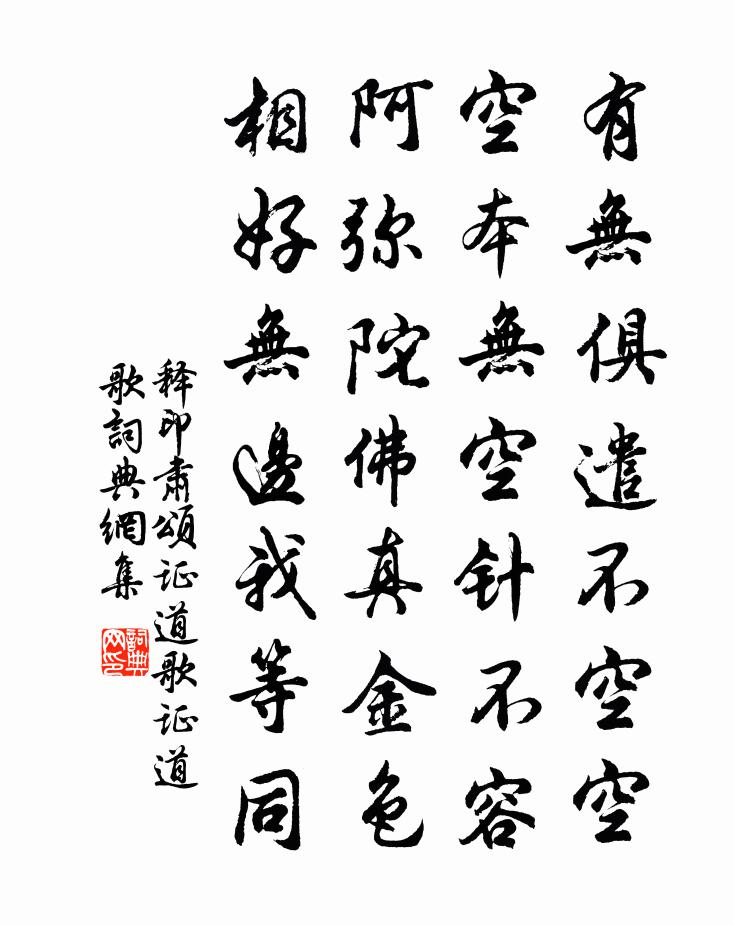 有無俱遣不空空
空本無空针不容
阿弥陀佛真金色
相好無邊我等同
释印肃頌证道歌证道
歌詞典網集
詞典网印